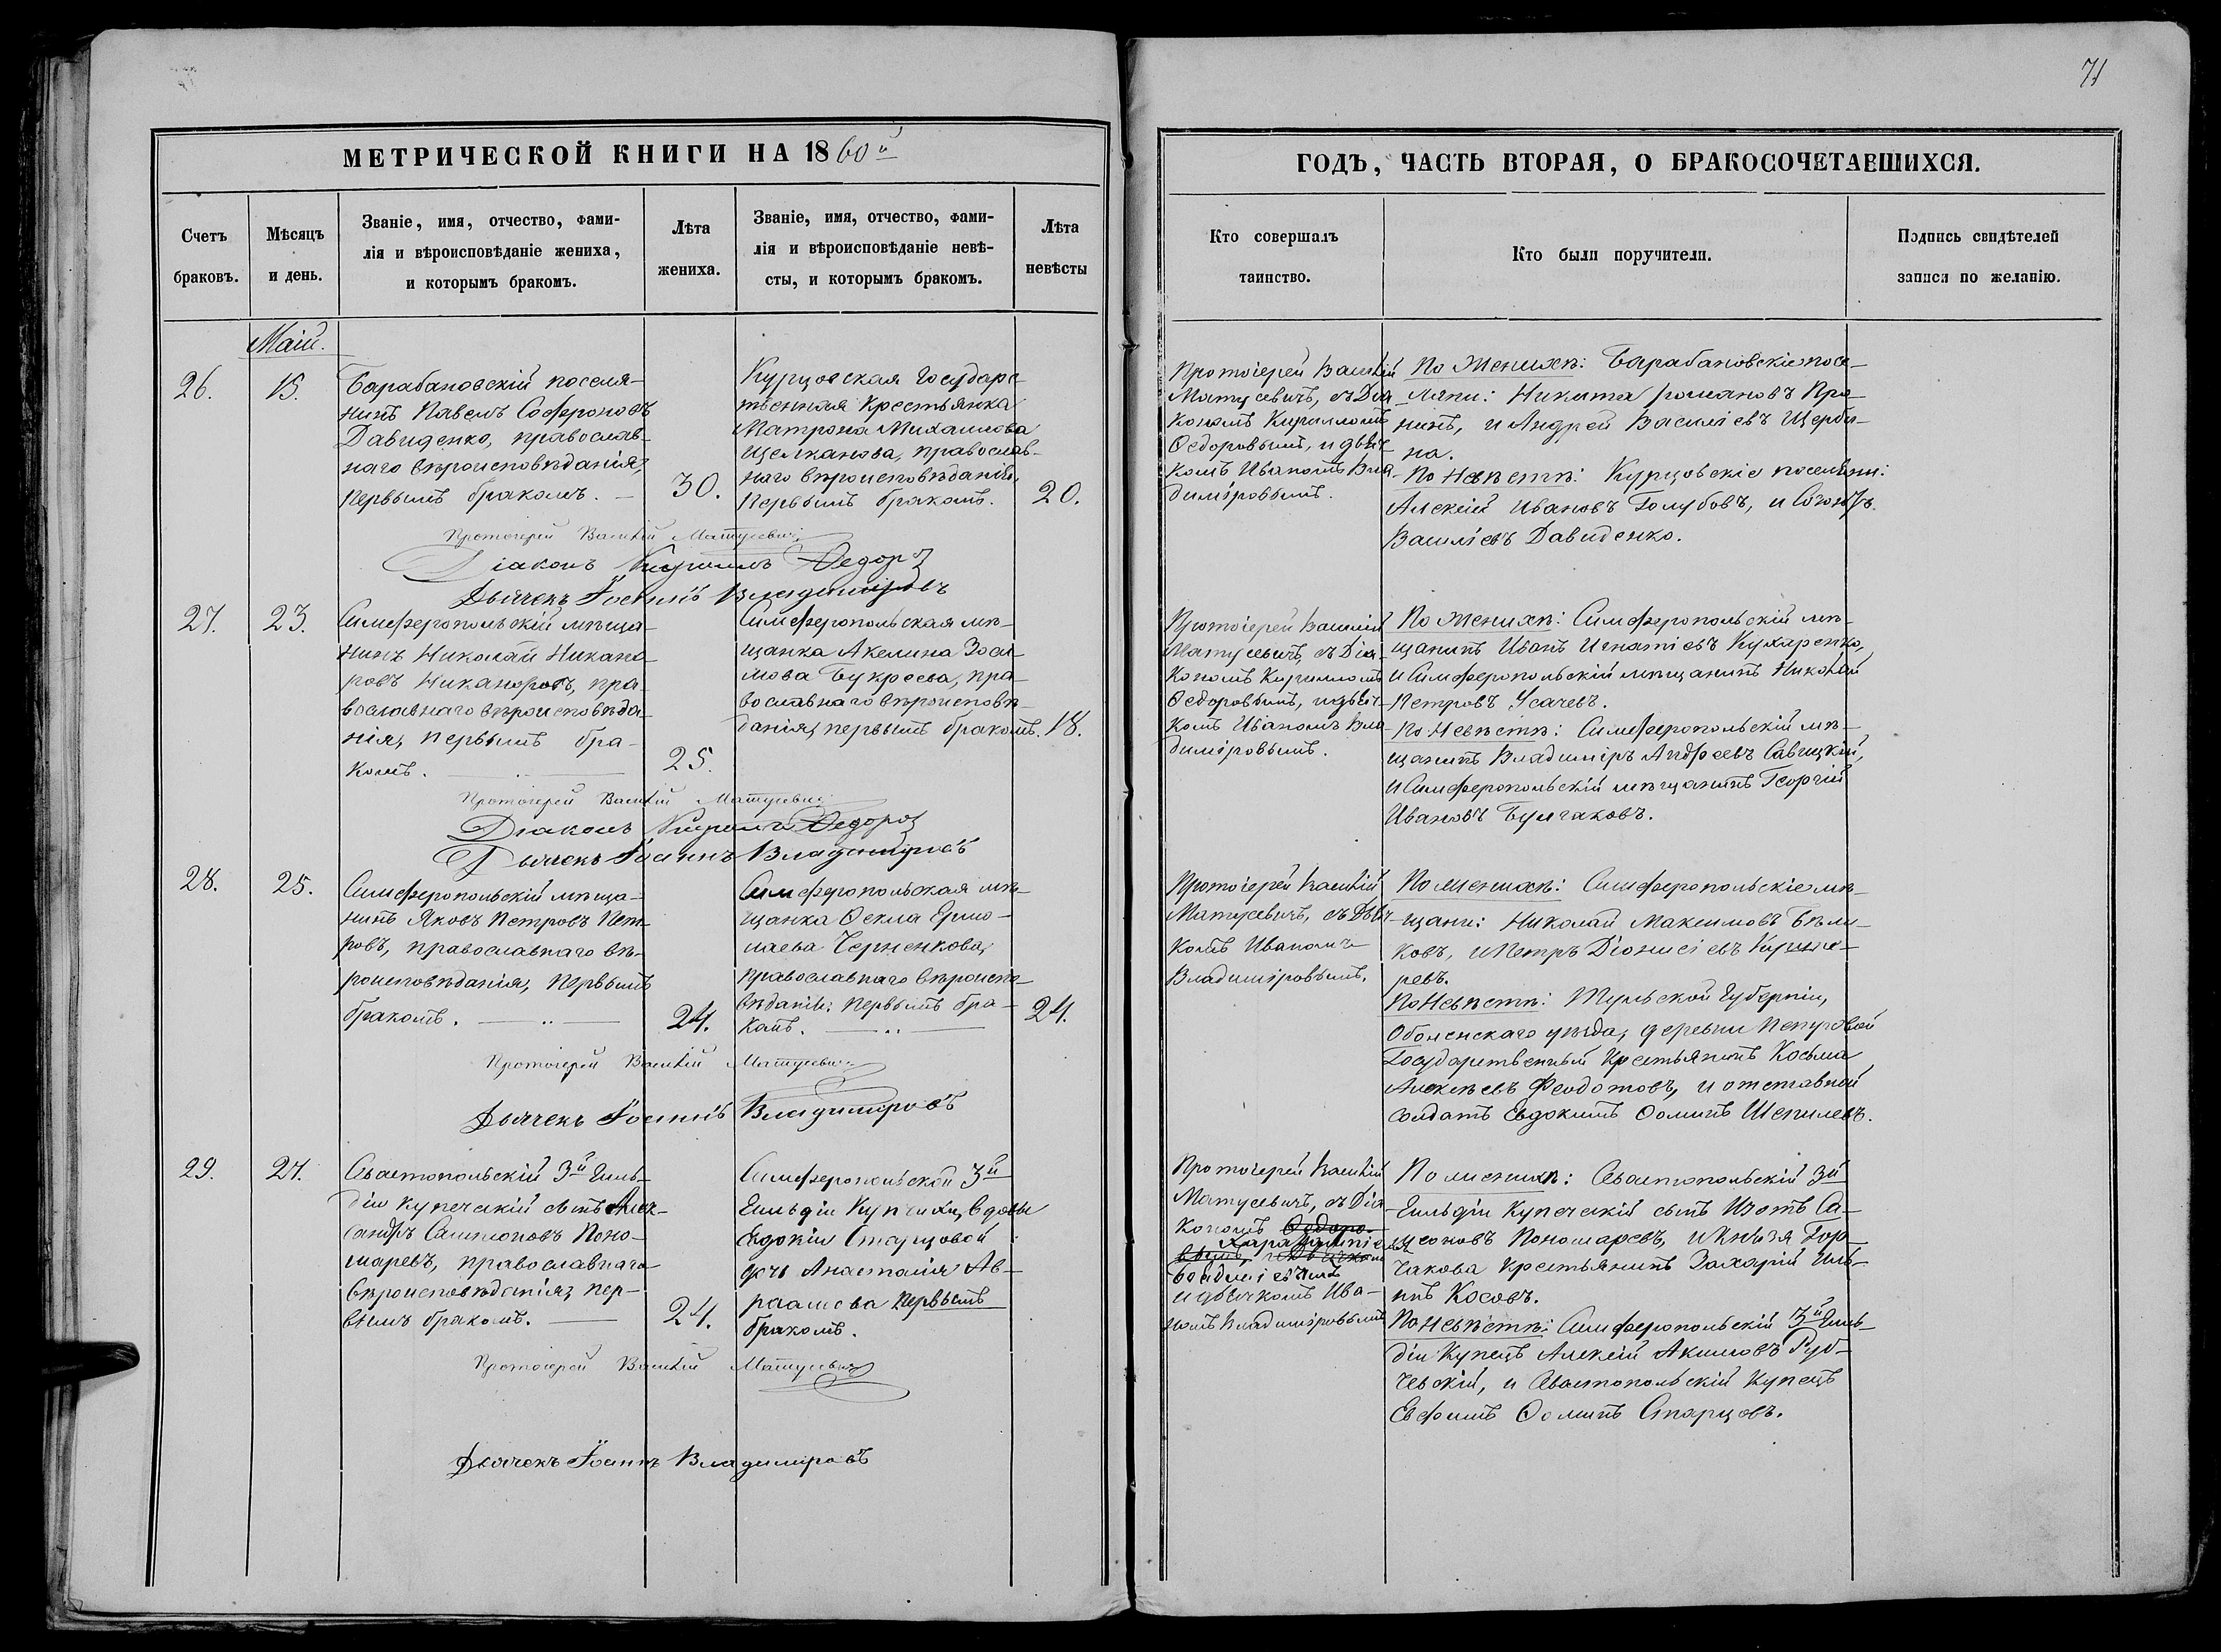 71
МЕТРИЧЕСКОЙ КНИГИ НА 1860й
ГОДЪ, ЧАСТЬ ВТОРАЯ, О БРАКОСОЧЕТАВШИХСЯ.
Счетъ
браковъ.
Мѣсяцъ
и день.
Званіе, имя, отчество, фами-
лія и вѣроисповѣданіе жениха,
и которымъ бракомъ.
Лѣта
жениха.
Званіе, имя, отчество, фами-
лія и вѣроисповѣданіе невѣ-
сты, и которымъ бракомъ.
Лѣта
невѣсты
Кто совершалъ
таинство.
Кто были поручители.
Подпись свидѣтелей
записи по желанію.
Маій.
26.
15.
Барабановскій поселя-
нинъ Павелъ Софроновъ
Давиденко, православ-
наго вѣроисповѣданія,
первымъ бракомъ. —
30.
Курцовская Государс-
твенная крестьянка
Матрона Михаилова
Щелканова, православ-
наго вѣроисповѣданія,
первымъ бракомъ.
20.
Протоіерей Василій
Матусевичъ, съ Діа-
кономъ Кирилломъ
Ѳедоровымъ, и дьяч-
комъ Иваномъ Вла-
диміровымъ.
По Женихѣ: Барабановскіе посе-
ляни: Никита Романовъ Про-
нинъ, и Андрей Василіевъ Щерби-
на.
По Невѣстѣ: Курцовскіе поселяни:
Алексій Ивановъ Голубовъ, и
Василіевъ Давиденко.
Протоіерей Василій Матусевичъ
Діаконъ Кириллъ Ѳедоровъ
Дьячекъ Іоаннъ Владиміровъ
27.
23.
Симферопольскій мѣща-
нинъ Николай Никано-
ровъ Никаноровъ, пра-
вославнаго вѣроисповѣда-
нія, первымъ бра-
комъ.
25.
Симферопольская мѣ-
щанка Акелина Зоси-
мова Букреева, пра-
вославнаго вѣроисповѣ-
данія, первымъ бракомъ.
18.
Протоіерей Василій
Матусевичъ, съ Діа-
кономъ Кирилломъ
Ѳедоровымъ, и дьяч-
комъ Иваномъ Вла-
диміровымъ.
По Женихѣ: Симферопольскій мѣ-
щанинъ Иванъ Игнатіевъ Кухаренко,
и Симферопольскій мѣщанинъ Николай
Петровъ Усачевъ.
По Невѣстѣ: Симферопольскій мѣ-
щанинъ Владиміръ Андреевъ Савицкій,
и Симферопольскій мѣщанинъ Георгій
Ивановъ Булгаковъ.
Протоіерей Василій Матусевичъ
Діаконъ Кириллъ Ѳедоровъ
Дьячекъ Іоаннъ Владиміровъ
28.
25.
Симферопольскій мѣща-
нинъ Яковъ Петровъ Пет-
ровъ, православнаго вѣ-
роисповѣданія, первымъ
бракомъ.
24.
Симферопольская мѣ-
щанка Ѳекла Ермо-
лаева Черненкова,
православнаго вѣроиспо-
вѣданія, первымъ бра-
комъ.
24.
Протоіерей Василій
Матусевичъ, съ Дьяч-
комъ Иваномъ
Владиміровымъ.
По женихѣ: Симферопольскіе мѣ-
щани: Николай Максимовъ Бѣли-
ковъ, и Петръ Діонисіевъ
ревъ.
По Невѣстѣ: Тульской Губерніи,
уѣзда, деревни
Государственный Крестьянинъ Косьма
Алексѣевъ Феодотовъ, и отставной
солдатъ Евдокимъ Ѳоминъ Шепилевъ.
Протоіерей Василій Матусевичъ
Дьячекъ Іоаннъ Владиміровъ
29.
27.
Севастопольскій 3й Гиль-
діи купеческій сынъ Алек-
сандръ Самсоновъ Поно-
маревъ, православнаго
вѣроисповѣданія, пер-
вымъ бракомъ. —
24.
Симферопольской 3й
Гильдіи Купчихи, вдовы
Евдокіи Старцовой
дочь Анастасія Ав-
раамова первымъ
бракомъ.
Протоіерей Василій
Матусевичъ, съ Діа-
кономъ Ѳедоро-
вымъ, и дьячкомъ
и дьячкомъ Ива-
номъ Владиміровымъ
По женихѣ: Севастопольскій 3й
Гильдіи купеческій сынъ Изотъ Са-
мсоновъ Пономаревъ, и Князя Гор-
чакова крестьянинъ Захарій Иль-
инъ Косовъ.
По Невѣстѣ: Симферопольскій 3й Гиль-
діи Купецъ Алексій Акимовъ Руб-
чевскій, и Севастопольскій Купецъ
Евфимъ Ѳоминъ Старцовъ.
Протоіерей Василій Матусевичъ
Дьячекъ Іоаннъ Владиміровъ